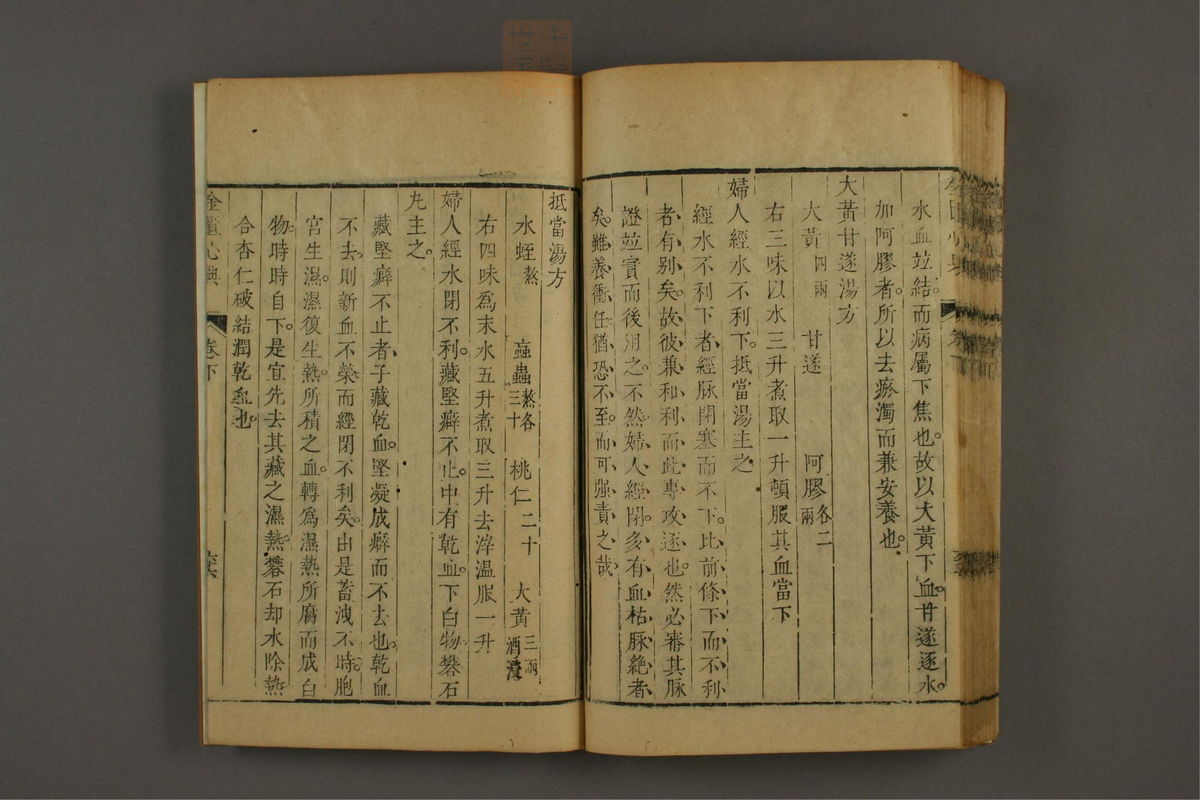 水血竝結而病屬下焦也故以大黄下血甘遂逐水
加阿膠者所以去瘀濁而兼安養也
大黄甘遂湯方
大黄四兩 甘遂 阿膠各二兩
右三味以水三升煮取一升頓服其血當下
婦人經水不利下抵當湯主之
經水不利下者經脉閉塞而不下比前條下而不利
者有别矣故彼兼和利而此專攻逐也然必審其脉
證竝實而後用之不然婦人經閉多有血枯脉絶者
矣雖養衝任猶恐不至而可强責之哉
抵當湯方
水蛭熬 蝱蟲熬各三十 桃仁二十 大黄三兩酒浸
右四味爲末水五升煮取三升去滓温服一升
婦人經水閉不利藏堅癖不止中有乾血下白物礬石
丸主之
藏堅癖不止者子藏乾血堅凝成癖而不去也乾血
不去則新血不榮而經閉不利矣由是蓄洩不時胞
宫生濕濕復生熱所積之血轉爲濕熱所腐而成白
物時時自下是宜先去其藏之濕熱礬石却水除熱
合杏仁破結潤乾血也
金匱心典 卷下